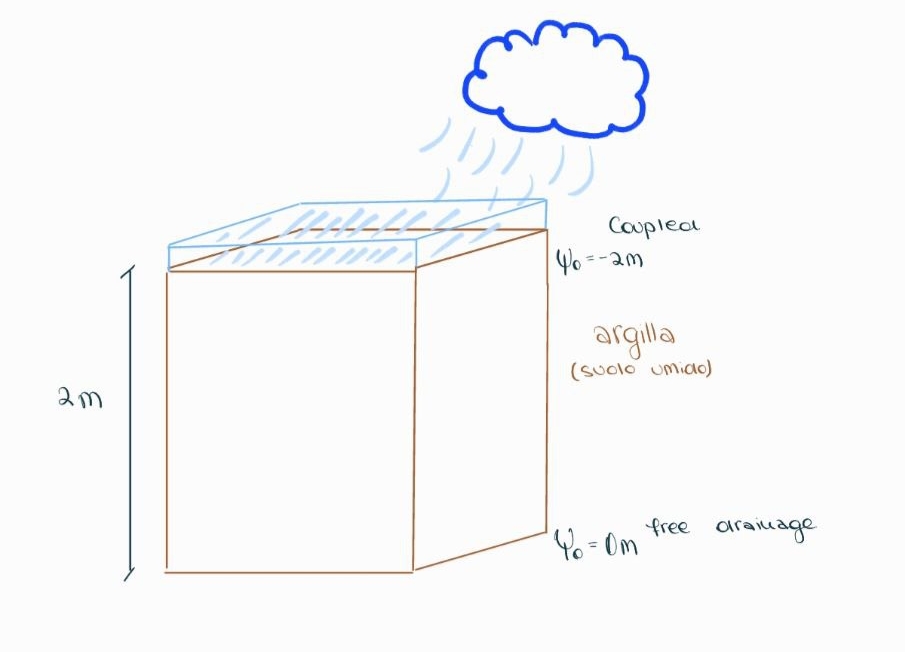 Coupled
ψ₀ = -2m
argilla
(suolo umido)
2m
ψ₀ = 0m free drainage